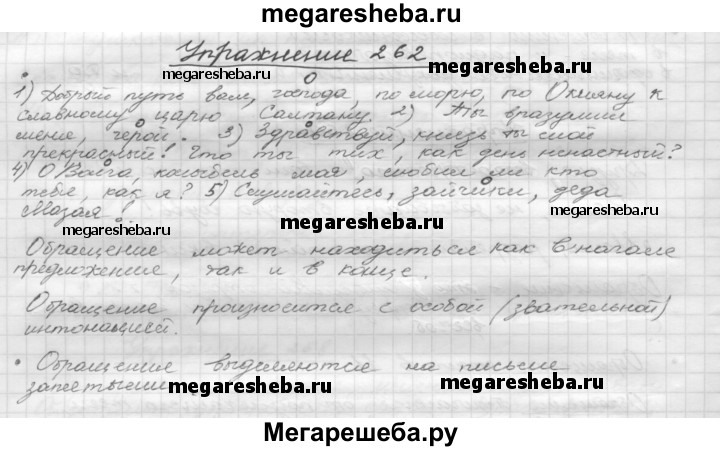 megaresheba.ru
Упражнение 262
megaresheba.ru megaresheba.ru
1) Добрый путь вам, господа, по морю, по Окияну к
славному царю Салтану. 2) Ты вразуми
меня, герой. 3) Здравствуй, князь ты мой
прекрасный! Что ты тих, как день ненастный?
4) О Волга, колыбель моя, любил ли кто
тебя, как я? 5) Слушайтесь, зайчики, деда
Мазая!
megaresheba.ru megaresheba.ru megaresheba.ru
Обращение может находиться как в начале
предложение, так и в конце.
Обращение произносится с особой (звательной)
интонацией.
Обращение выделяются на письме
запятыми
megaresheba.ru megaresheba.ru
Мегарешеба.ру